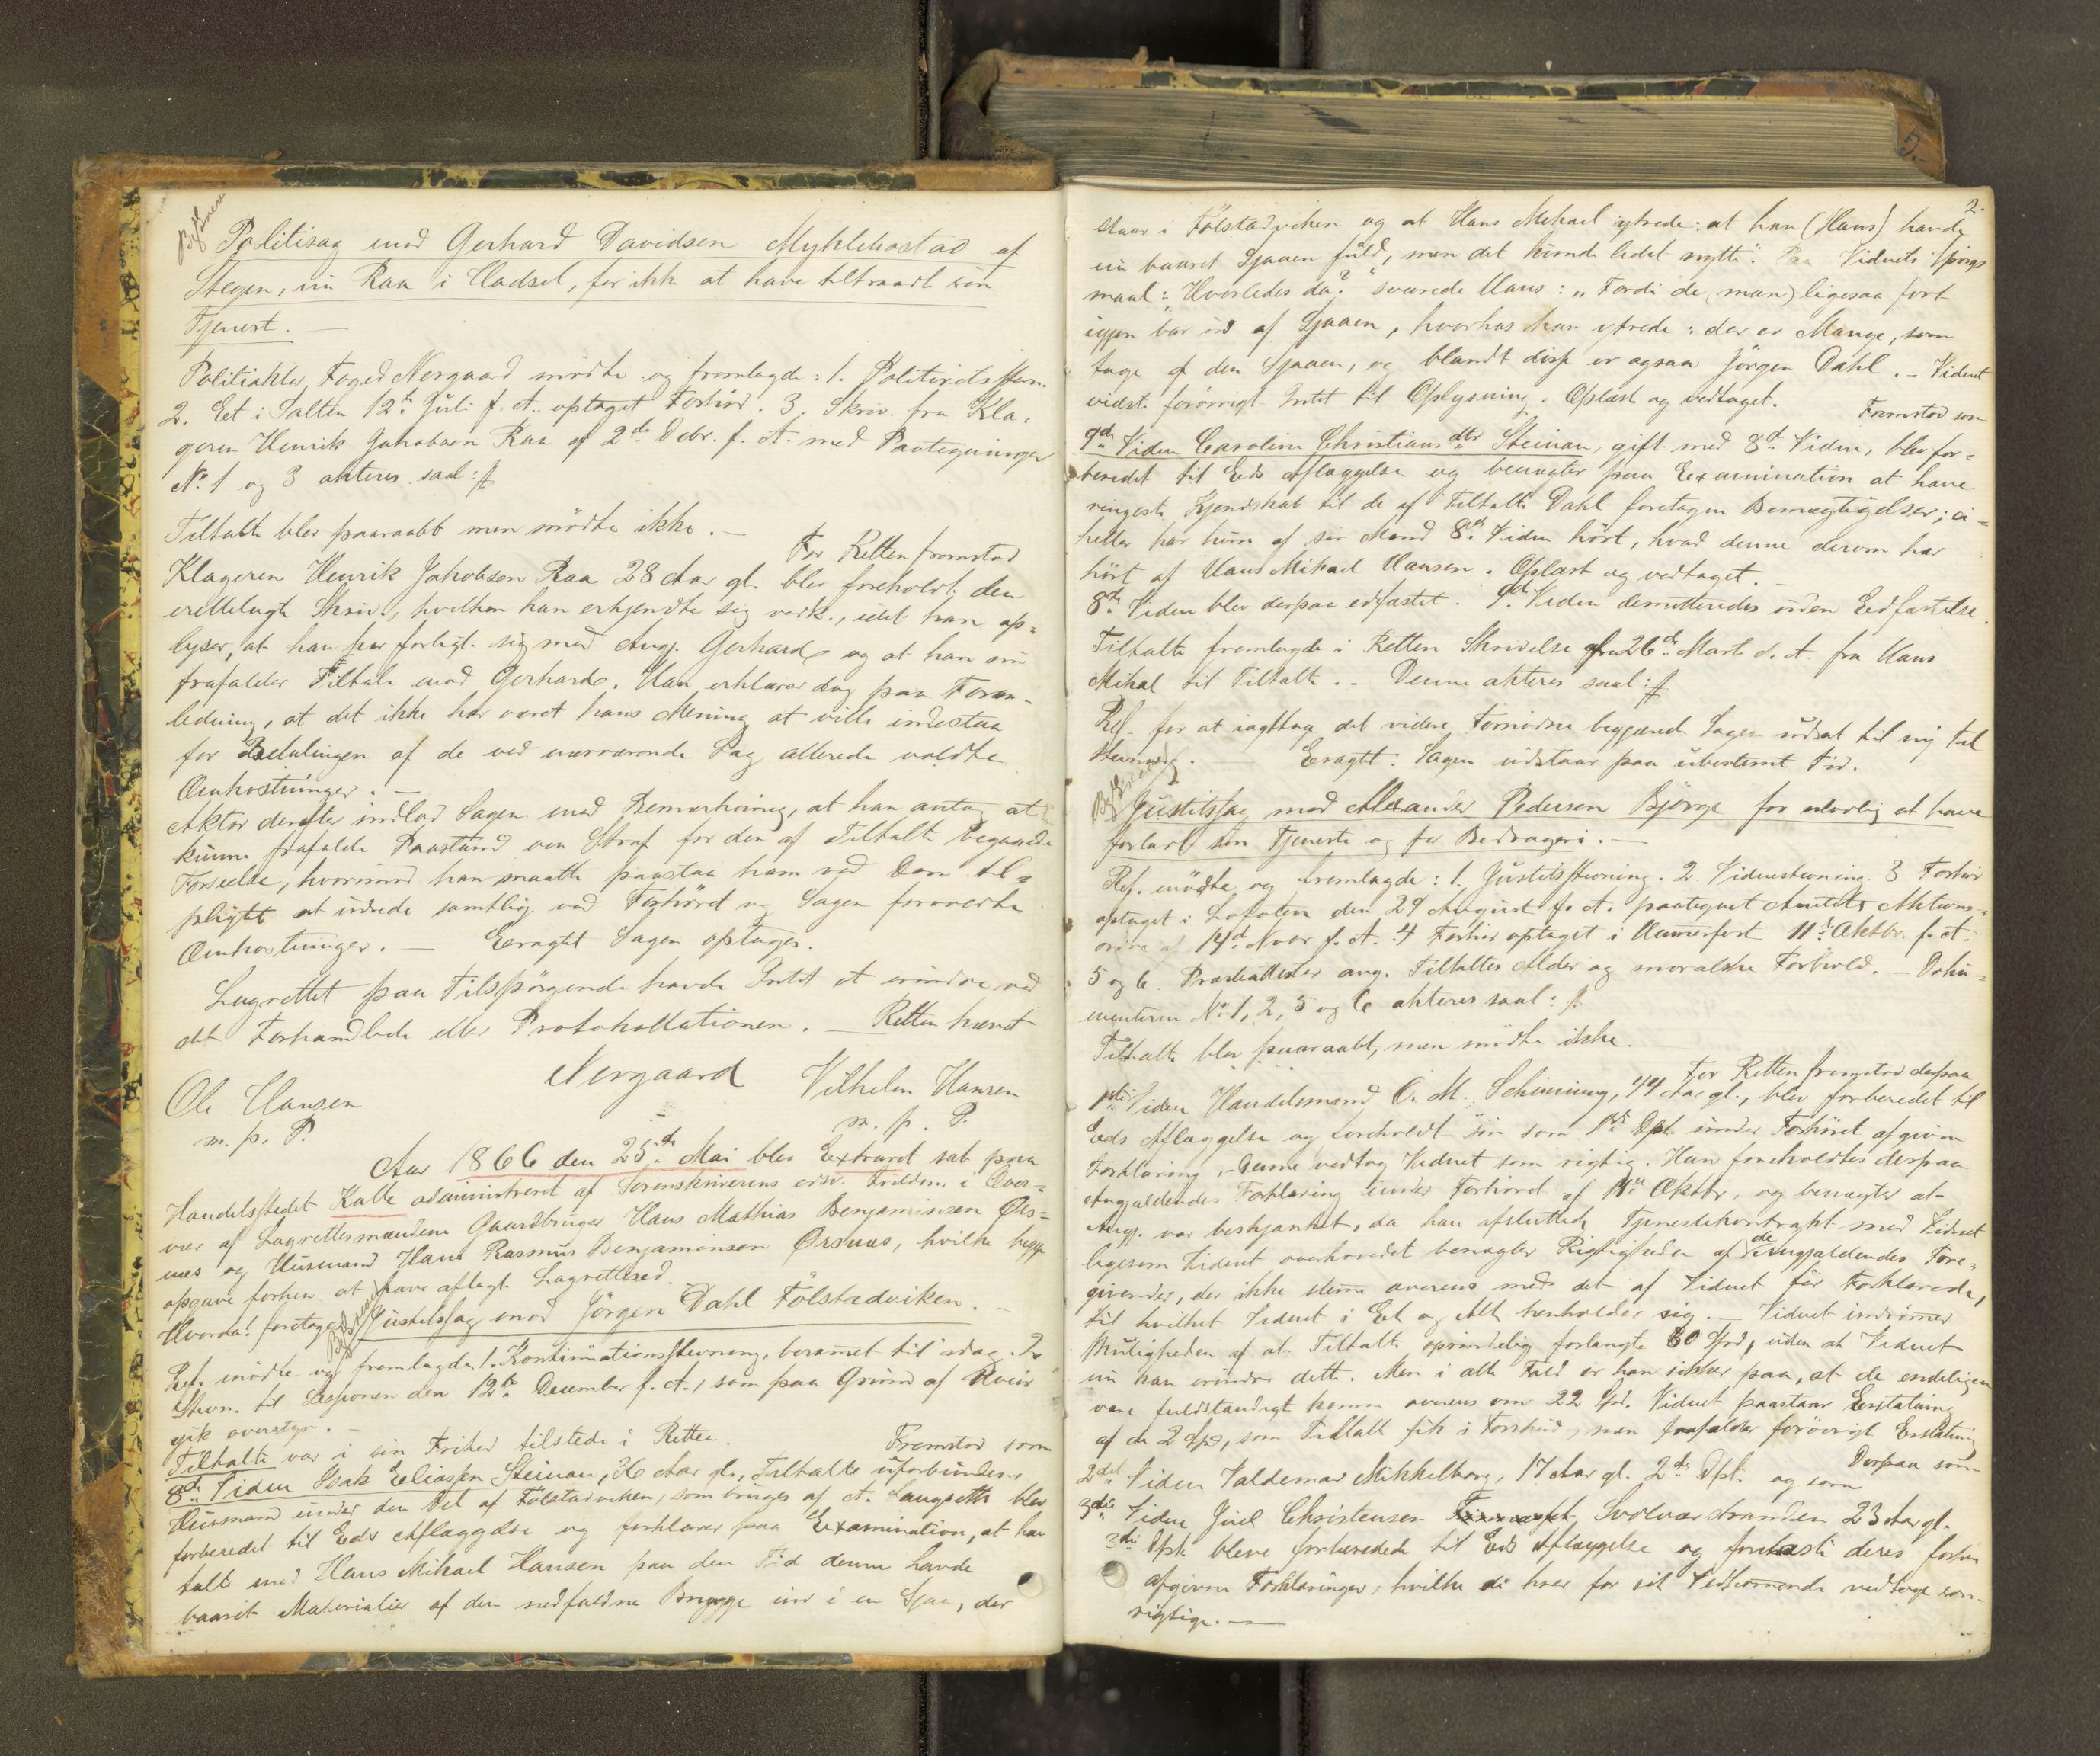 Politisag mod Gerhard Davidsen Myklebostad af
Stegen, nu Raa i Hadsel, for ikke at have tiltraadt sin
Tjenest.
Politiaktor, Foged Norgaard mødte og fremlagde: 1. Politiretsstevn.
2. Et i Salten 12te Juli f. A. optaget Forhør. 3. Skriv. fra Kla-
geren Henrik Jakobsen Raa af 2de Debr. f. A. med Paategninger
No 1 og 3 akteres saal:
Tiltalte blev paaraabt men mødte ikke. –
For Retten fremstod
Klageren Henrik Jakobsen Raa 28 Aar gl. blev foreholdt den
irettelagte Skriv., hvilken han erkjendte sig vedk., idet han op-
lyser, at han har forligt sig med Ang. Gerhard og at han nu
frafalder Tiltale mod Gerhard. Han erklærer dog paa Foran-
ledning, at det ikke har været hans Mening at ville indestaa
for Betalingen af de ved nærværende Sag allerede voldte
Omkostninger. –
Aktor derefter indlod Sagen med Bemærkning, at han antog at
kunne frafalde Paastand om Straf for den af Tiltalte begaaede
Forseelse, hvorimod han maatte paastaa ham ved Dom til-
pligtet at udrede samtlige ved Forhøret og Sagen forvoldte
Omkostninger. – Eragtet Sagen optages.
Lagrettet paa Tilspørgende havde Intet at erindre ved
det Forhandlede eller Protokollationen. – Retten hævet
Norgaard
Ole Hansen Vilhelm Hansen
m. p. P. m. p. P.
Aar 1866 den 25de Mai blev Extraret sat paa
Handelsstedet Kalle administreret af Sorenskriverens edsv. Fuldm. i Over-
vær af Lagrettesmændene Gaardbruger Hans Mathias Benjaminsen Ørs-
nes og Husmand Hans Rasmus Benjaminsen Ørsnes, hvilke begge
opgave forhen at have aflagt Lagretteed.
Hvorda! foretoges Justitssag mod Jørgen Dahl Fölstadviken. –
Ref. mødte og fremlagde 1. Kontinuationsstevning, berammet til idag. 2
Stevn. til Sessionen den 12te December f. A., som paa Grund af Veir
gik overstyr. –
Tiltalte var i sin Frihed tilstede i Retten. Fremstod som
8de Viden Isak Eliassen Steinan, 36 Aar gl., Tiltalte uforbunden
Husmand under den Del af Fölstadviken, som bruges af A. Laugseth blev
forberedet til Eds Aflæggelse og forklarer paa Examination, at han
talte med Hans Mikael Hansen paa den Tid denne havde
baaret Materialier af den nedfaldne Brygge ind i en Sjaa, der
2.
staar i Fölstadviken og at Hans Mikael ytrede: at han (Hans) havde
nu baaret Sjaaen fuld, men det kunde lidet nytte". Paa Vidnets Spørgs
maal: "Hvorledes da?" svarede Hans: "Fordi de (man) ligesaa fort
igjen bar ud af Sjaaen, hvorhos han ytrede: der er Mange, som
tage af den Sjaaen, og blandt disse er ogsaa Jörgen Dahl. – Vidnet
vidste forøvrigt Intet til Oplysning. Oplæst og vedtaget.
Fremstod som
9de Viden Caroline Christiansdtr Steinan, gift med 8de Viden, blev for-
beredet til Eds Aflæggelse og benægter paa Examination at have
ringeste Kjendskab til de af Tiltalte Dahl foretagne Bemægtigelser; ei-
heller har hun af sin Mand 8de Viden hört, hvad denne derom har
hört af Hans Mikael Hansen. Oplæst og vedtaget. –
8de Viden blev derpaa edfæstet. 9de Viden demitteredes uden Edfæstelse.
Tiltalte fremlagde i Retten Skrivelse af 26de Marts d. A. fra Hans
Mikal til Tiltalte. – Denne akteres saal:
Ref. for at iagttage det videre Fornødne begjærede Sagen udsat til ny Til
Stevning. Eragtet: Sagen udstaar paa ubestemt Tid.
Justitssag mod Alexander Pedersen Bjørge for ulovlig at have
forladt sin Tjeneste og for Bedrageri. –
Ref. mødte og fremlagde: 1. Justitsstevning. 2. Vidnestevning. 3 Forhør
optaget i Lofoten den 29 August f. A. paategnet Amtets Aktions-
ordre af 14de Novbr f. A. 4 Forhør optaget i Hammerfest 11te Oktbr. f. A.
5 og 6. Præsteattester ang. Tiltaltes Alder og moralske Forhold. – Doku-
menterne No 1, 2, 5 og 6 akteres saal:
Tiltalte blev paaraabt, men mødte ikke.
For Retten fremstod derpaa
1ste Viden Handelsmand O. M. Schinning, 44 Aar gl., blev forberedet til
Eds Aflæggelse og foreholdt sin som 1ste Dpt. under Forhöret afgivne
Forklaring, – Denne vedtog Vidnet som rigtig. Han foreholdtes derpaa
Angjældendes Forklaring under Forhöret af 11te Oktbr, og benægter at
Ang. var beskjænket, da han afsluttede Tjenestekontrakt med Vidnet
ligesom Vidnet overhovedet benægter Rigtigheden af de Angjældendes Fore-
givender, der ikke stemme overens med det af Vidnet før Forklarede,
til hvilket Vidnet i Et og Alt henholder sig. – Vidnet indrømmer
Muligheden af at Tiltalte oprindelig forlangte 30 Spd, uden at Vidnet
nu kan erindre dette. Men i alle Fald er han sikker paa, at de endeligen
vare fuldstændigt komne overens om 22 Spd. Vidnet paastaar Erstatning
af de 2 Spd, som Tiltalte fik i Forskud, men frafalder forøvrigt Erstatning
Derpaa som
2det Viden Valdemar Mikkelborg, 17 Aar gl. 2de Dpt. og som
3die Viden Juel Christensen Svolværstranden 23 Aar gl.
3die Dpt. bleve forberedede til Eds Aflæggelse og forelæst deres forhen
afgivne Forklaringer, hvilke de hver for sit Vedkommende vedtoge som
rigtige. –